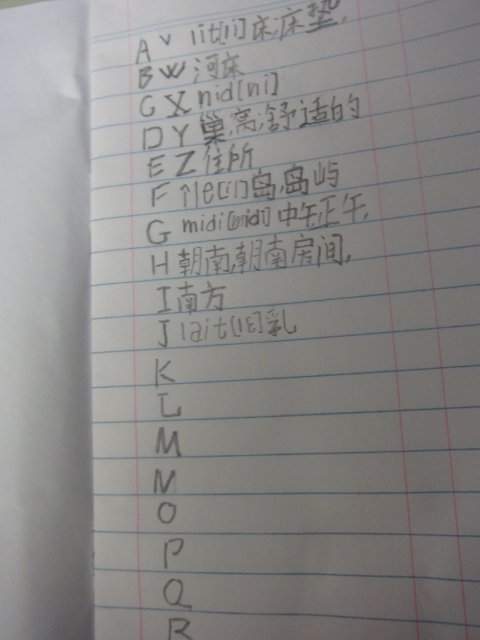 A V lit[li]床,床垫,
B W 河床
C X nid[ni]
D Y 巢,窝,舒适的
E Z 住所
F île[il]岛,岛屿
G midi[midi]中午,正午,
H 朝南,朝南房间,
I 南方
J lait[lɛ]乳
K
L
M
N
O
P
Q
R